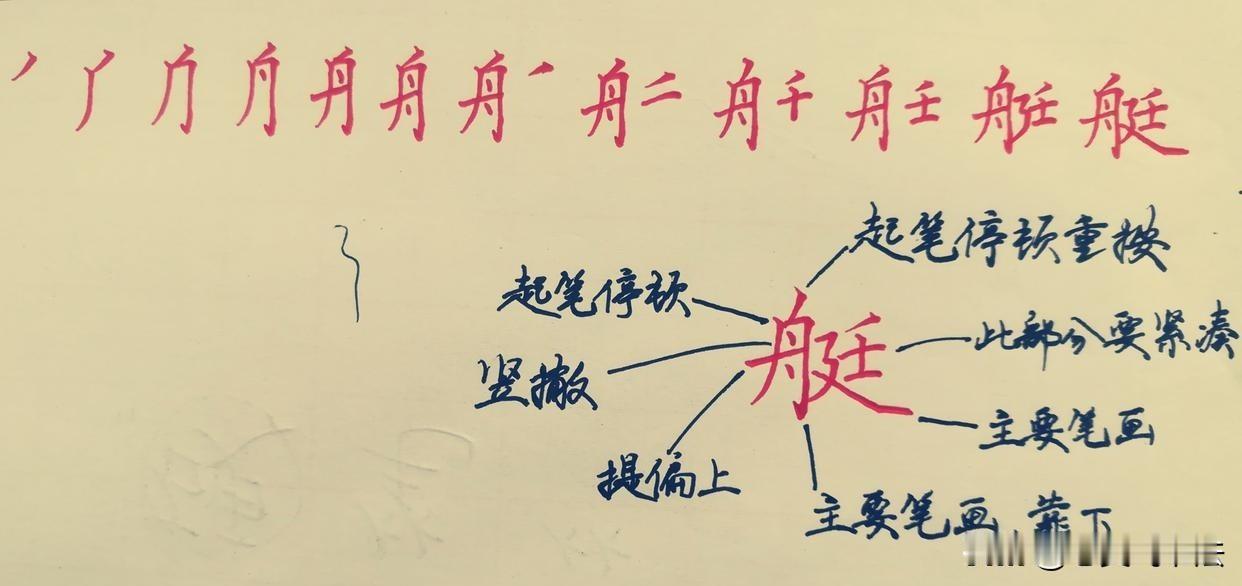 舟 舟 舟丿 舟二 舟千 舟壬 艇 艇
起笔停顿重按
起笔停顿
艇
此部分要紧凑
竖撇
主要笔画
提偏上
主要笔画、靠下